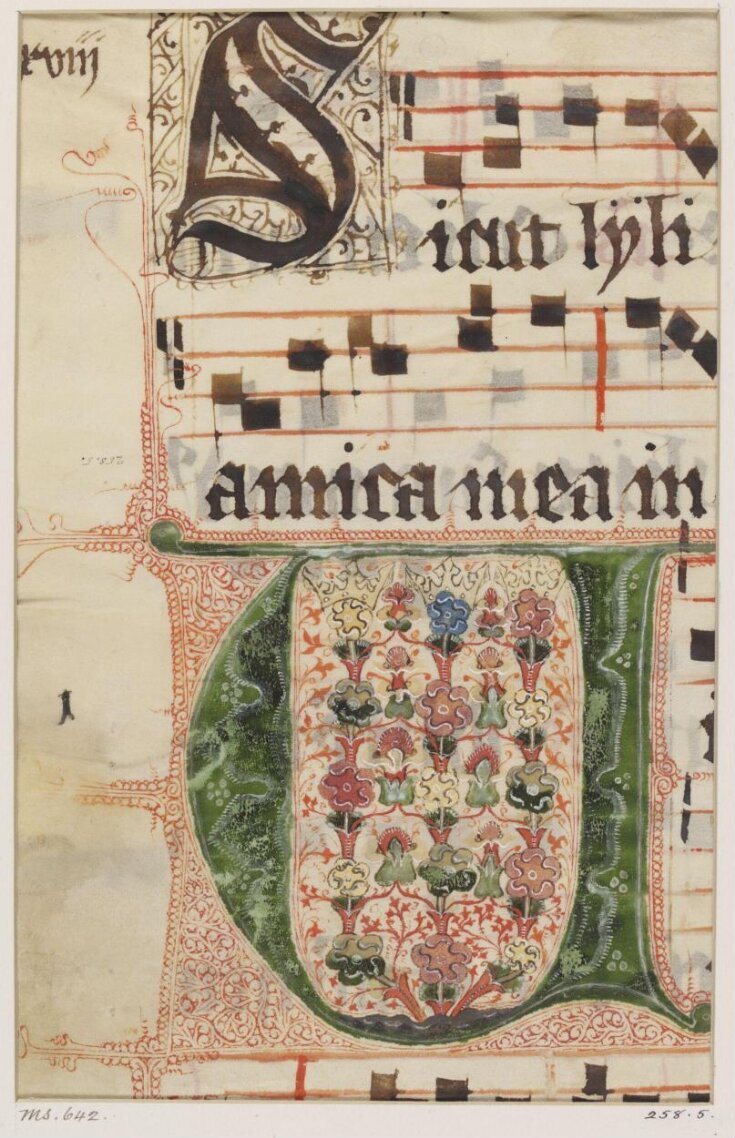 rviij
Sicut lyli
amica mea in
258.5.
U
Ms. 642.
258.5.